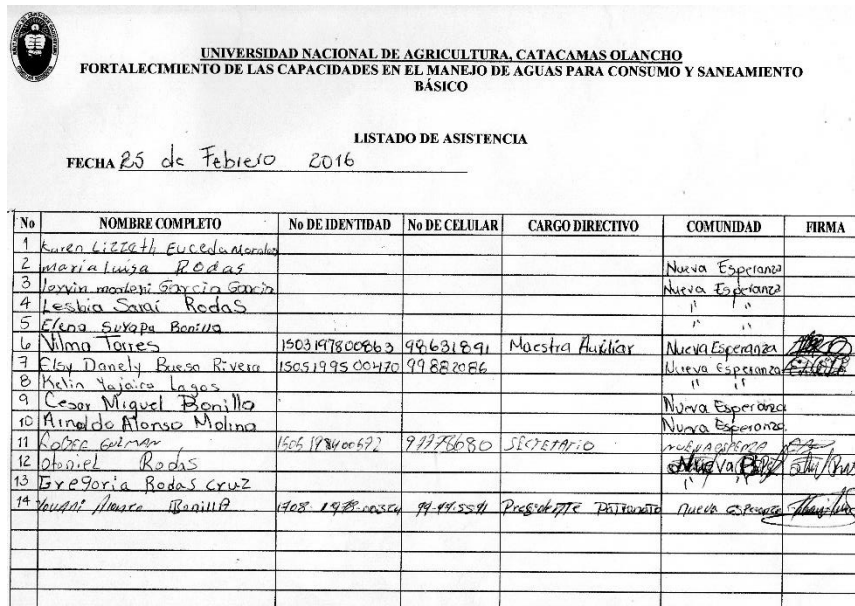 UNIVERSIDAD NACIONAL DE AGRICULTURA, CATACAMAS OLANCHO
FORTALECIMIENTO DE LAS CAPACIDADES EN EL MANEJO DE AGUAS PARA CONSUMO Y SANEAMIENTO
BÁSICO
LISTADO DE ASISTENCIA
FECHA 25 de Febrero 2016
No NOMBRE COMPLETO No DE IDENTIDAD No DE CELULAR CARGO DIRECTIVO COMUNIDAD FIRMA
1 Karen Lizzeth Euceda Morales
2 maria Luisa Rodas Nueva Esperanza
3 García García Nueva Esperanza
4 Lesbia Sarai Rodas " "
5 Elena Suyapa Bonilla " "
6 Vilma Torres 1503197800863 98631891 Maestra Auxiliar Nueva Esperanza
7 Elsy Danely Bueso Rivera 1505199500470 99882086 Nueva Esperanza
8 Kelin Yajaira Lagos " "
9 Cesar Miguel Bonilla Nueva Esperanza
10 Arnaldo Alonso Molina Nueva Esperanza
11 GUZMAN SECRETARIO
12 Otoniel Rodas Nueva
13 Gregoria Rodas cruz " "
14 Bonilla Presidente Patronato nueva esperanza